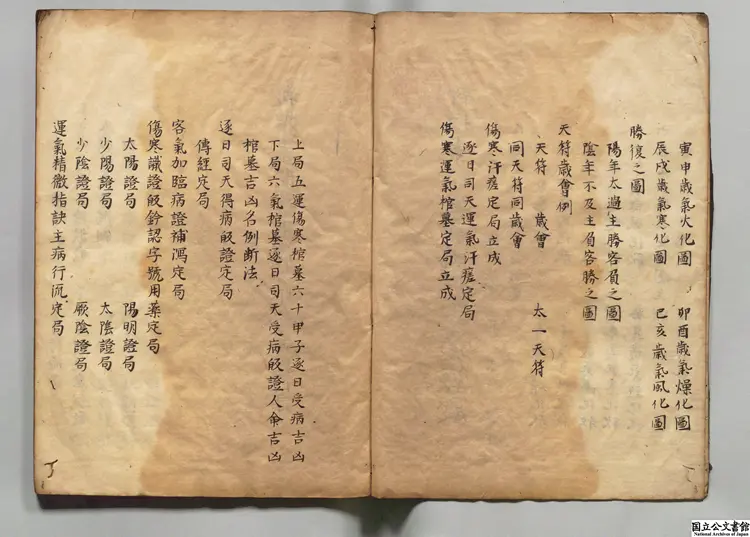 寅申歲氣火化圖 卯酉歲氣燥化圖
辰戌歲氣寒化圖 己亥歲氣風化圖
勝復之圖
陽年太過主勝客負之圖
陰年不及主負客勝之圖
天符歲會例
天符 歲會 太一天符
同天符同歲會
傷寒汗瘥定局立成
逐日司天運氣汗瘥定局
傷寒運氣棺墓定局立成
上局五運傷寒棺墓六十甲子逐日受病吉凶
下局六氣棺墓逐日司天受病脉證人命吉凶
棺墓吉凶名例斷法
逐日司天得病脉證定局
傳經定局
客氣加臨病證補瀉定局
傷寒識證脉鈐認字號用藥定局
太陽證局 陽明證局
少陽證局 太陰證局
少陰證局 厥陰證局
運氣精微指訣主病行流定局
国立公文書館
National Archives of Japan